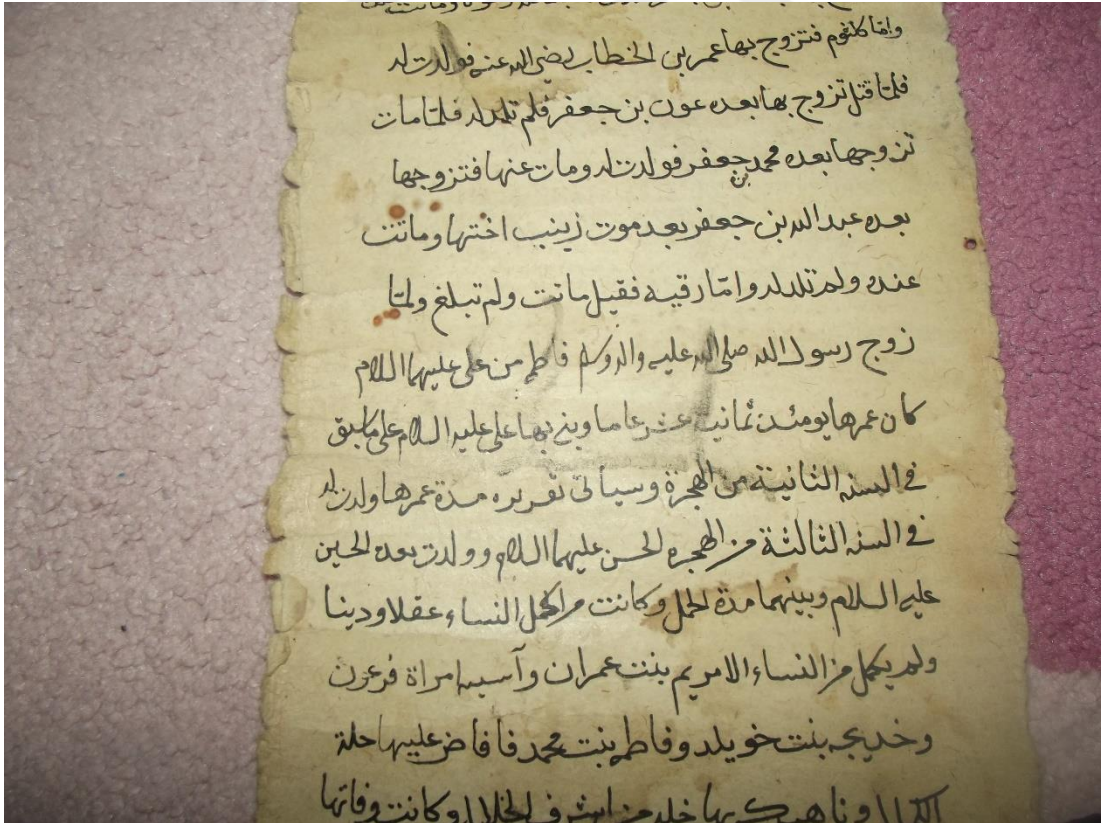 واما كلثوم فتزوج بها عمر بن الخطاب رضي الله عنه فولدت له
فلما قتل تزوج بها بعده عون بن جعفر فلم تلد له فلما مات
تزوجها بعده محمد بن جعفر فولدت له ومات عنها فتزوجها
بعده عبد الله بن جعفر بعد موت زينب اختها وماتت
عنده ولم تلد له واما رقيه فقيل ماتت ولم تبلغ ولما
زوج رسول الله صلى الله عليه واله وسلم فاطمه من علي عليهما السلام
كان عمرها يومئذ ثمانية عشر عاما وبنى بها علي عليه السلام على ما سبق
في السنه الثانية من الهجرة وسيأتى تقريره مدة عمرها ولدت له
في السنه الثالثة من الهجره الحسن عليهما السلام وولدت بعده الحسين
عليه السلام وبينهما مدة الحمل وكانت من اكمل النساء عقلا ودينا
ولم يكمل من النساء الا مريم بنت عمران وآسيه امراة فرعون
وخديجه بنت خويلد وفاطمه بنت محمد فافاض عليها حلة
وناهيك بها خلد من اشرف الخلال وكانت وفاتها